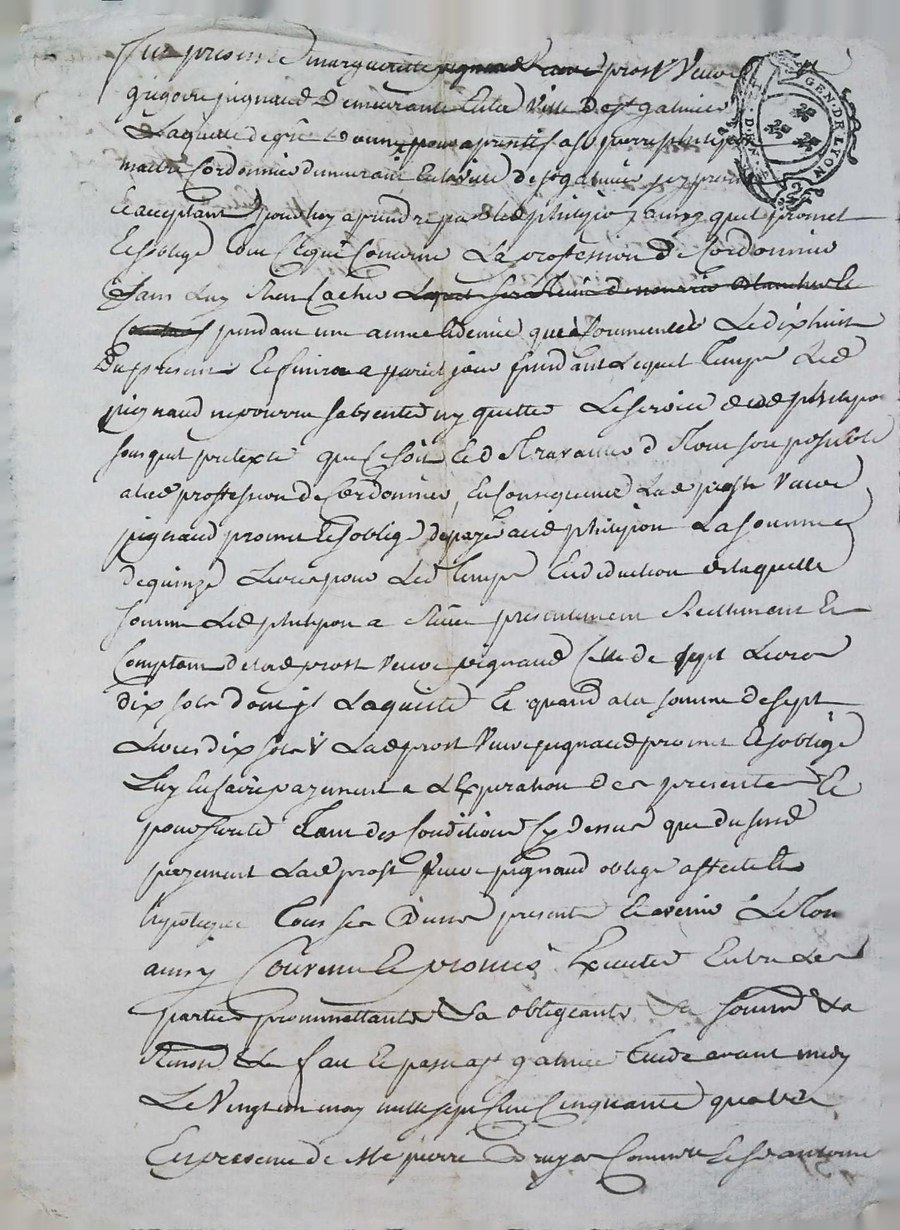 Fut presente marguerite pignaud veuve prost veuve
grégoire pignaud demeurante en la ville de st galmier
Laquelle de gré donne pour aprentif a sr pierre philipon
maitre cordonnier demeurant en la ville de st galmier icy present
et acceptant pour luy aprendre par led philipon ainsy quil promet
et soblige tout ce qui concerne la profession de cordonnier
sans luy rien cacher lequel sera tenu de nourrir blanchir et
coucher pendant une année et demie qui a commencé le dixhuit
du present et finira a pareil jour pendant lequel temps led
pignaud ne pourra sabsenter ny quitter le service dud philipon
sous quel pretexte que ce soit et de travailler de tout son possible
alad profession de cordonnier en consequence lad prost veuve
pignaud promet et soblige de payer aud philipon la somme
de quinze livres pour led temps en deduction de laquelle
somme led philipon a reçu presentement reellement et
comptant de lad prost veuve pignaud celle de sept livres
dix sols dont il la quitte et quand a la somme de sept
livres dix sols lad prost veuve pignaud promet et soblige
luy en faire payement a lexpiration des presentes et
pour sureté tant des conditions cy dessus que du susd
payement lad prost veuve pignaud oblige affecte et
hypoteque tous ses biens presents et avenir le tout
ainsy convenu et promis executer entre les
parties promettants &a obligeants &a soumis &a
renon &a fait et passé a st galmier etude avant midy
le vingt un may mille sept cent cinquante quatre
en presence de Me pierre commre et sr antoine
GEN. DE LION